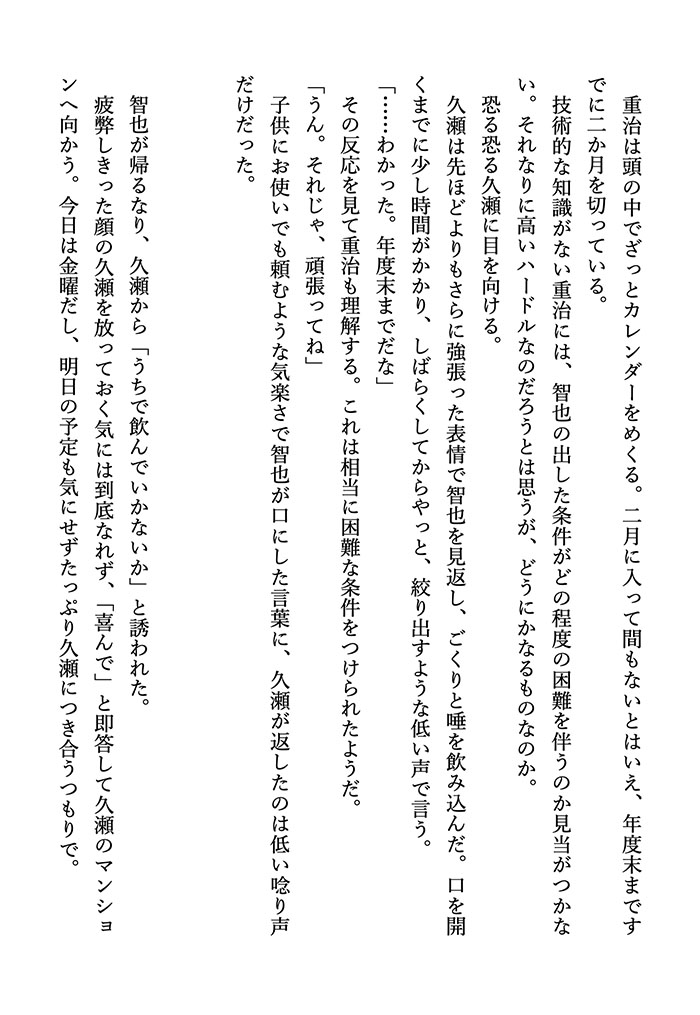 重治は頭の中でざっとカレンダーをめくる。二月に入って間もないとはいえ、年度末まです
でに二か月を切っている。
　技術的な知識がない重治には、智也の出した条件がどの程度の困難を伴うのか見当がつかな
い。それなりに高いハードルなのだろうとは思うが、どうにかなるものなのか。
　恐る恐る久瀬に目を向ける。
　久瀬は先ほどよりもさらに強張った表情で智也を見返し、ごくりと唾を飲み込んだ。口を開
くまでに少し時間がかかり、しばらくしてからやっと、絞り出すような低い声で言う。
「……わかった。年度末までだな」
　その反応を見て重治も理解する。これは相当に困難な条件をつけられたようだ。
「うん。それじゃ、頑張ってね」
　子供にお使いでも頼むような気楽さで智也が口にした言葉に、久瀬が返したのは低い唸り声
だけだった。
　智也が帰るなり、久瀬から「うちで飲んでいかないか」と誘われた。
　疲弊しきった顔の久瀬を放っておく気には到底なれず、「喜んで」と即答して久瀬のマンショ
ンへ向かう。今日は金曜だし、明日の予定も気にせずたっぷり久瀬につき合うつもりで。